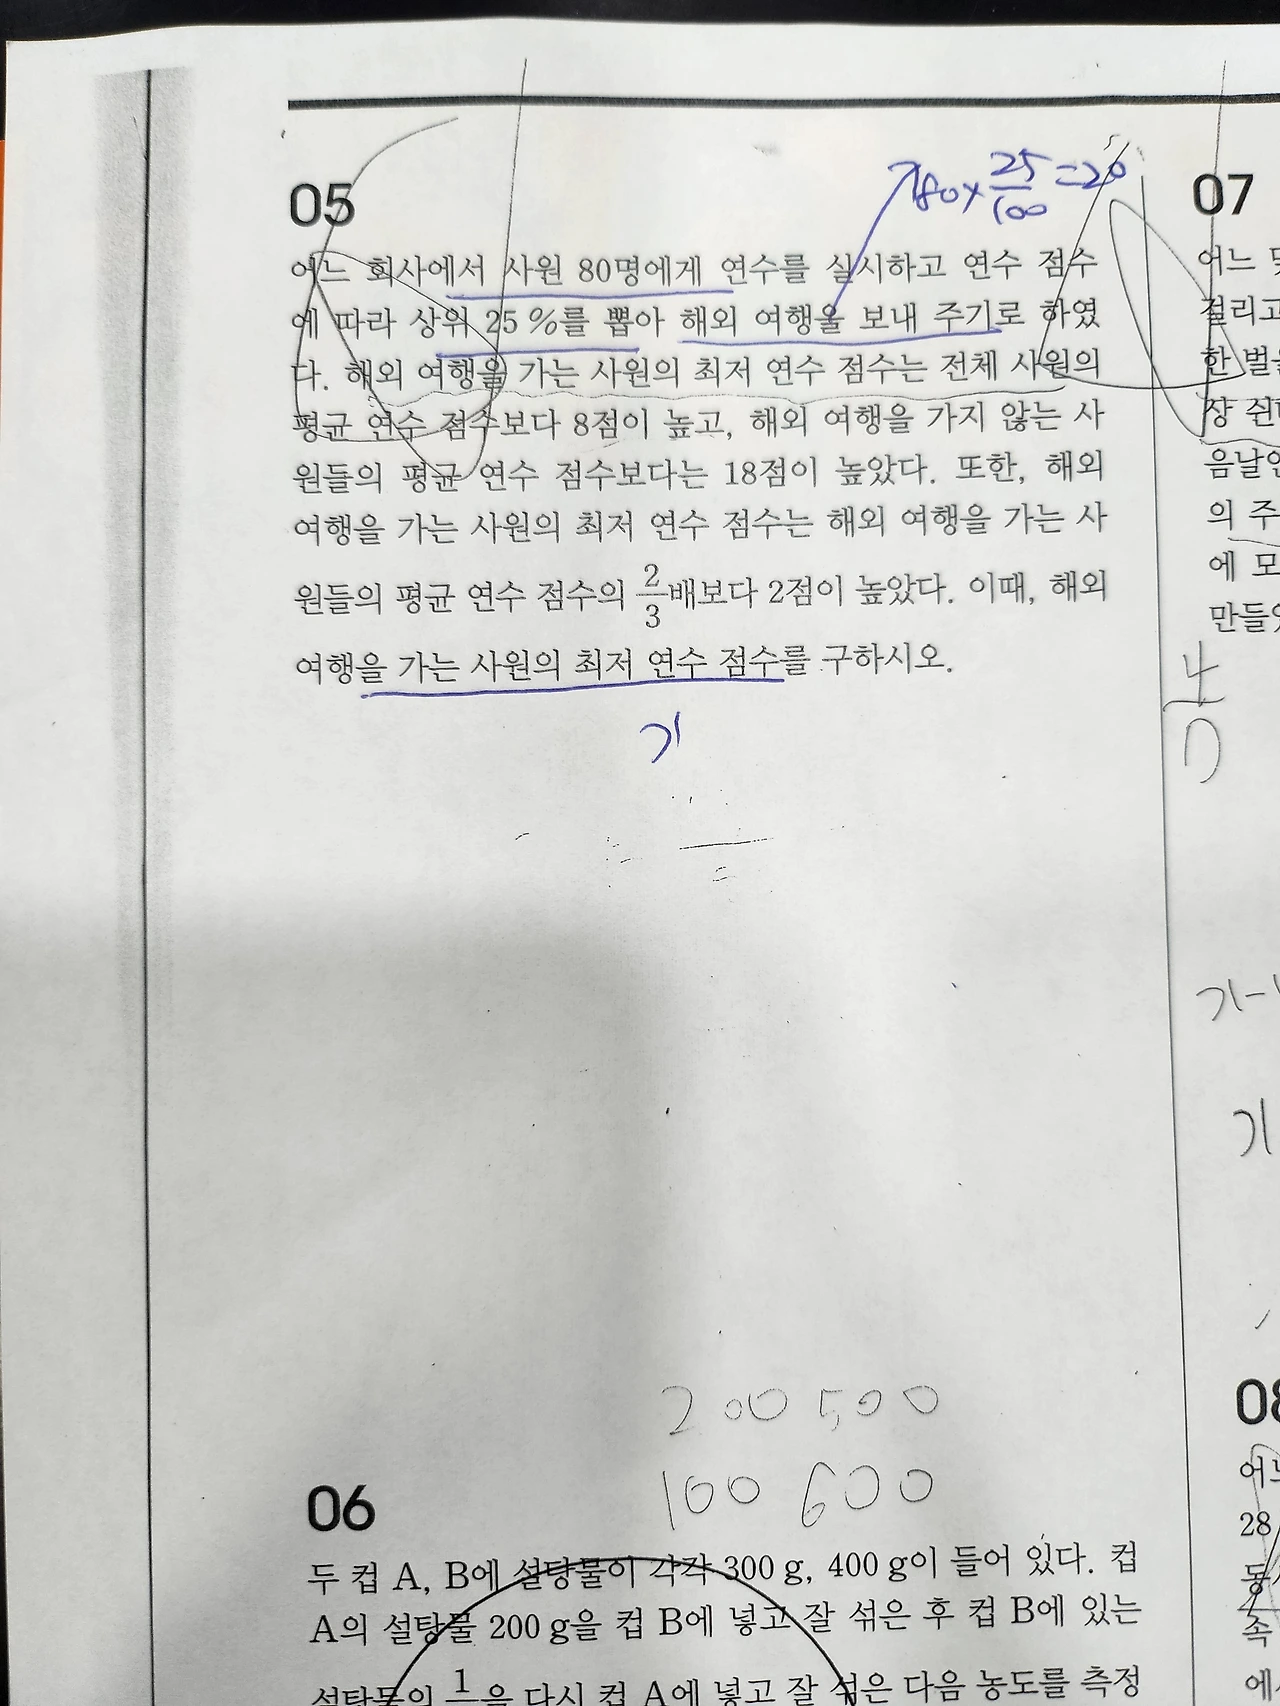 80×25/100=20
05
어느 회사에서 사원 80명에게 연수를 실시하고 연수 점수
에 따라 상위 25 %를 뽑아 해외 여행을 보내 주기로 하였
다. 해외 여행을 가는 사원의 최저 연수 점수는 전체 사원의
평균 연수 점수보다 8점이 높고, 해외 여행을 가지 않는 사
원들의 평균 연수 점수보다는 18점이 높았다. 또한, 해외
여행을 가는 사원의 최저 연수 점수는 해외 여행을 가는 사
원들의 평균 연수 점수의 2/3배보다 2점이 높았다. 이때, 해외
여행을 가는 사원의 최저 연수 점수를 구하시오.
가
200 500
100 600
06
두 컵 A, B에 설탕물이 각각 300 g, 400 g이 들어 있다. 컵
A의 설탕물 200 g을 컵 B에 넣고 잘 섞은 후 컵 B에 있는
설탕물의 1 을 다시 컵 A에 넣고 잘 섞은 다음 농도를 측정
07
어느
걸리고
한 벌을
장 쉰
음날
의 주
에 모
만들
08
28
동
속
에